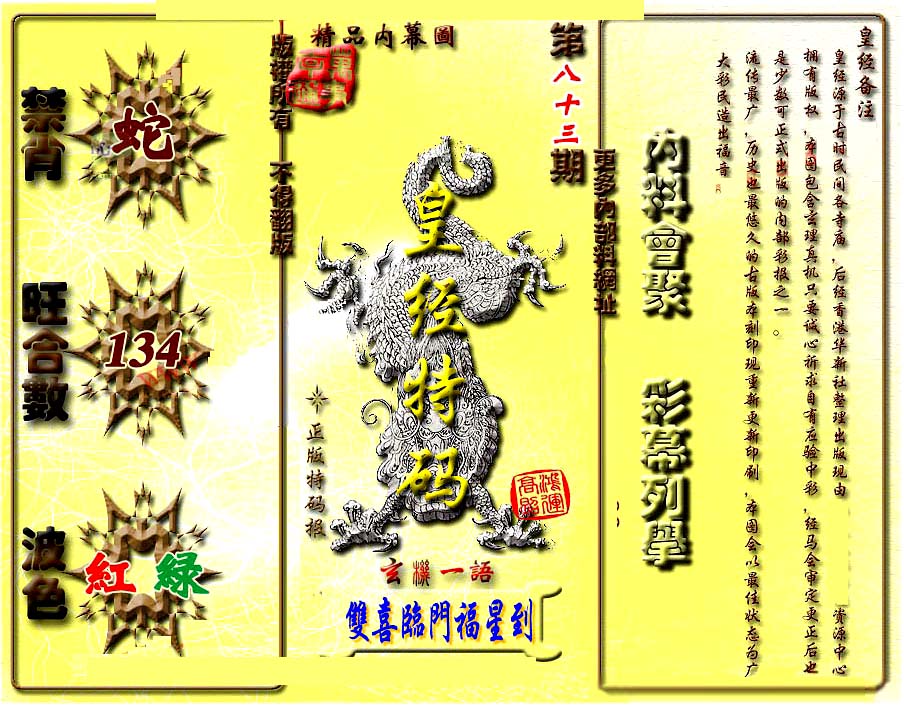 精品内幕圖
第八十三期
版權所有 不得翻版
禁肖
蛇
旺合數
134
波色
紅 綠
皇经特码
正版特码报
鴻運高照
玄機一語
雙喜臨門福星到
更多内部料網址
内料會聚 彩幕列舉
皇经备注
皇经源于古时民间各寺庙，后经香港华新社整理出版现由 资源中心
拥有版权，本图包含玄理真机只要诚心祈求自有应验中彩，经马会审定更正后也
是少数可正式出版的内部彩报之一。
流传最广，历史也最悠久的古版本刻印现重新更新印刷，本图会以最佳状态为广
大彩民造出福音